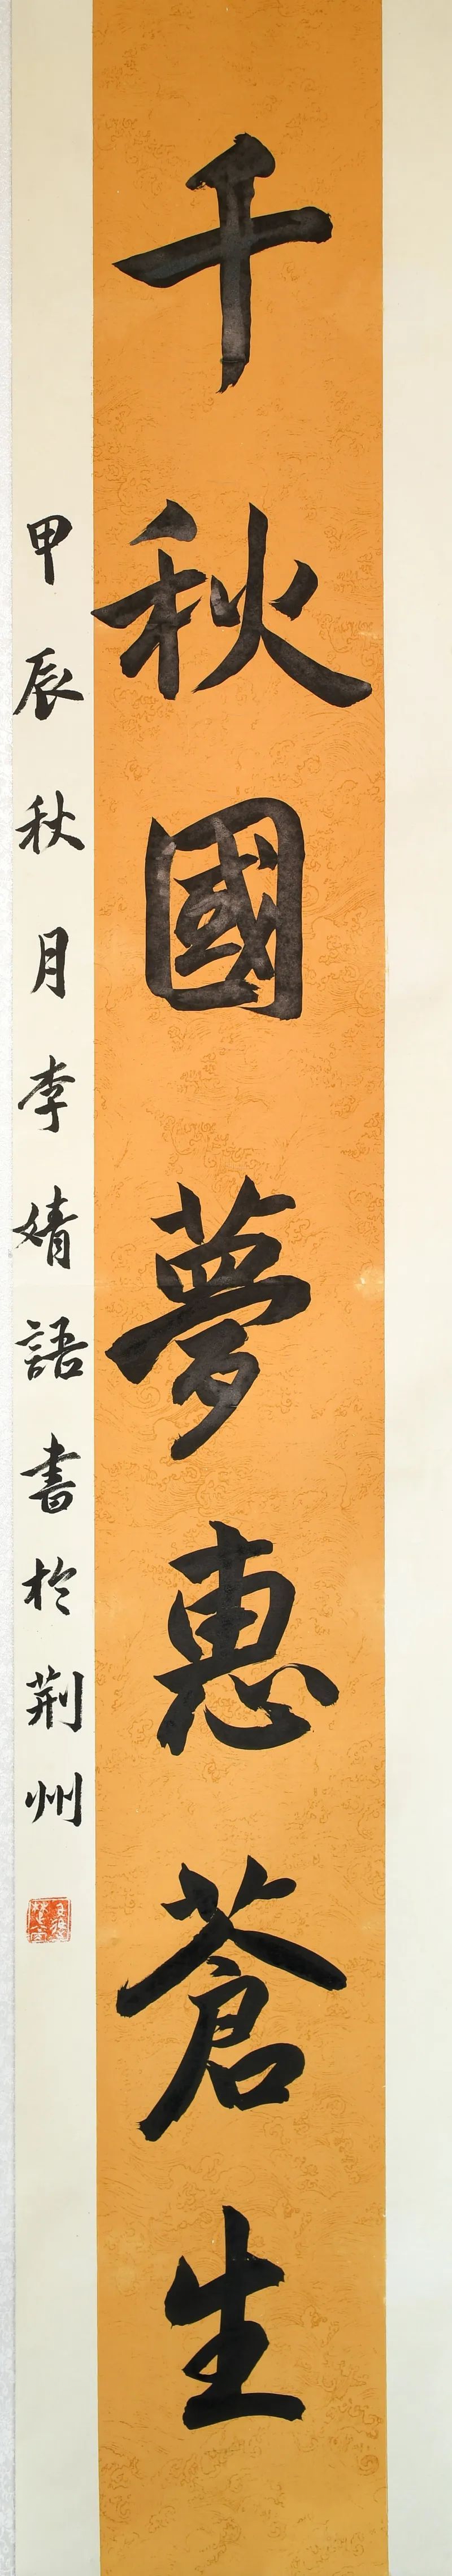 千秋國夢惠蒼生
甲辰秋月李婧語書於荊州